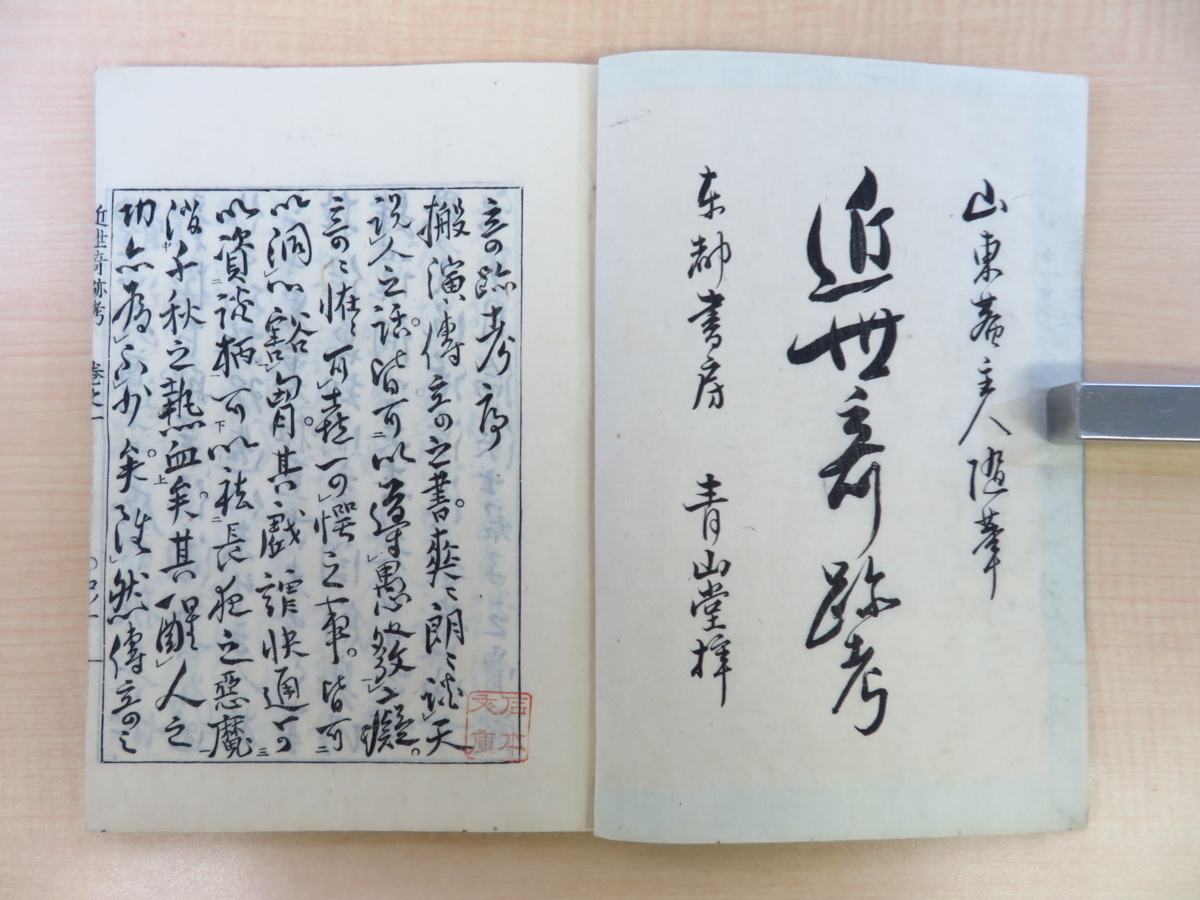 山東菴主人随筆
近世奇跡考
東都書房 青山堂梓
奇跡考序
搬演傳奇之書。爽〻朗〻談天
説人之話。皆可以導愚啓蒙癡。
奇〻恠〻可喜可愕之事。皆可
以洞心豁胸。其戯謔快通可
以資談柄可以祛長夜之惡魔
潑千秋之熱血矣。其醒人之
功亦為不少矣。雖然傳奇之
近世奇跡考 巻之一